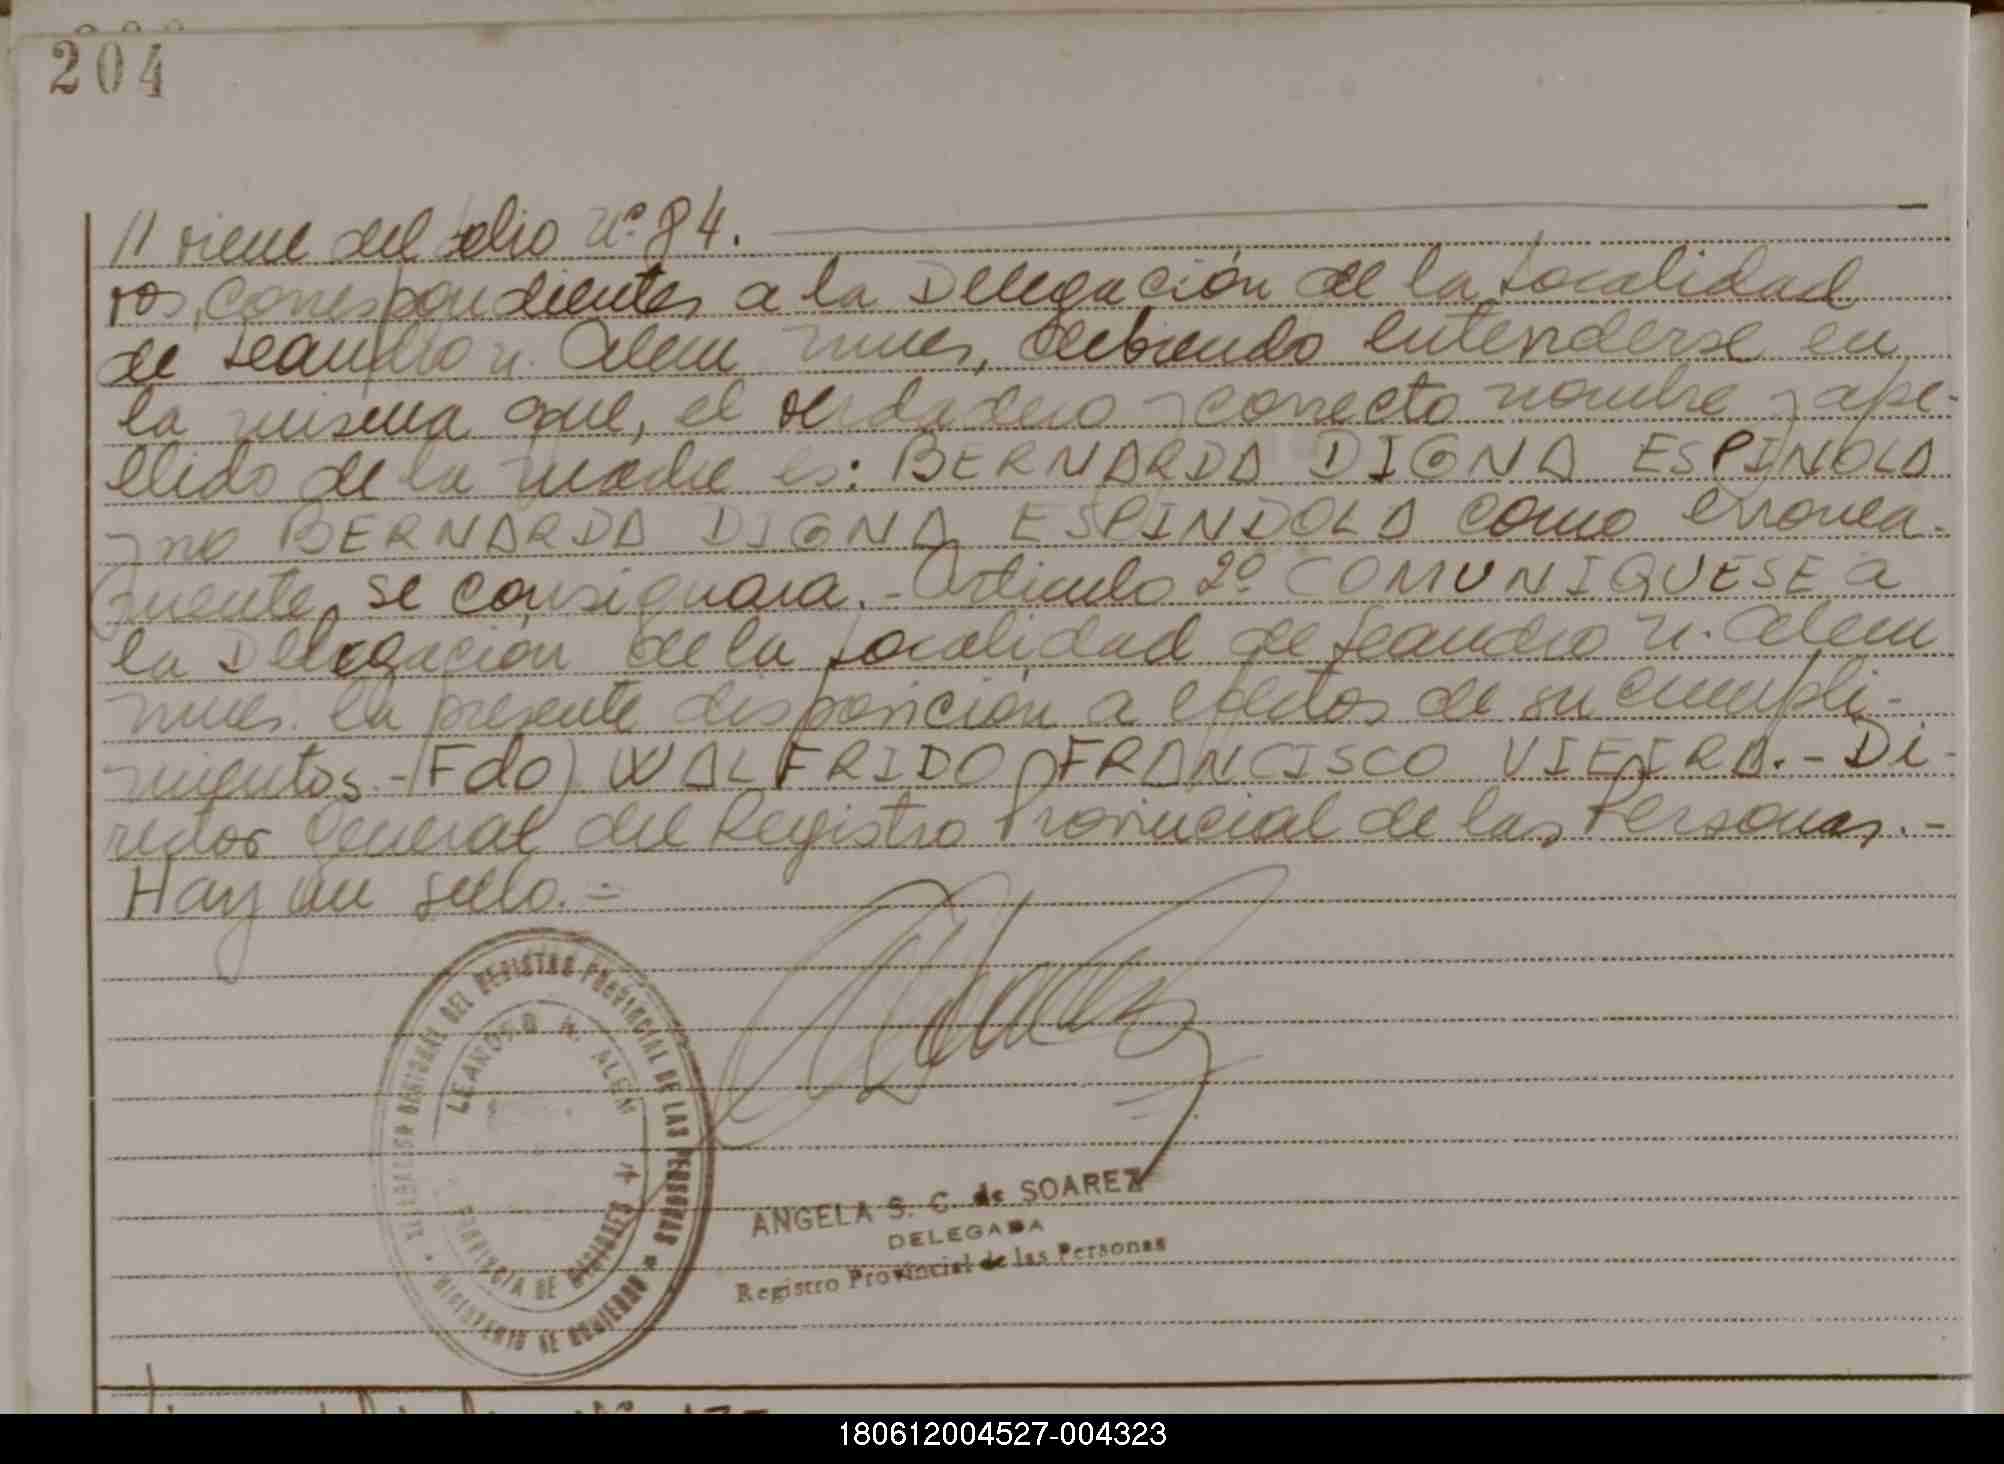 204
// viene del folio Nº 84.
ros, correspondientes a la Delegación de la localidad
de Leandro N. Alem Mnes, debiendo entenderse en
la misma que, el verdadero y correcto nombre y ape-
llido de la madre es: BERNARDA DIGNA ESPINOLA
y no BERNARDA DIGNA ESPINDOLA como erronea-
mente, se consignara.- Artículo 2º COMUNIQUESE a
la Delegación de la localidad de Leandro N. Alem
Mnes. la presente disposición a efectos de su cumpli-
mientos.- (Fdo) WALFRIDO FRANCISCO VIEIRA.- Di-
rector General del Registro Provincial de las Personas.-
Hay un sello.=
DEL REGISTRO PROVINCIAL DE LAS PERSONAS
LEANDRO N. ALEM
PROVINCIA DE MISIONES
MINISTERIO DE GOBIERNO
ANGELA S. C. de SOAREZ
DELEGADA
Registro Provincial de las Personas
180612004527-004323